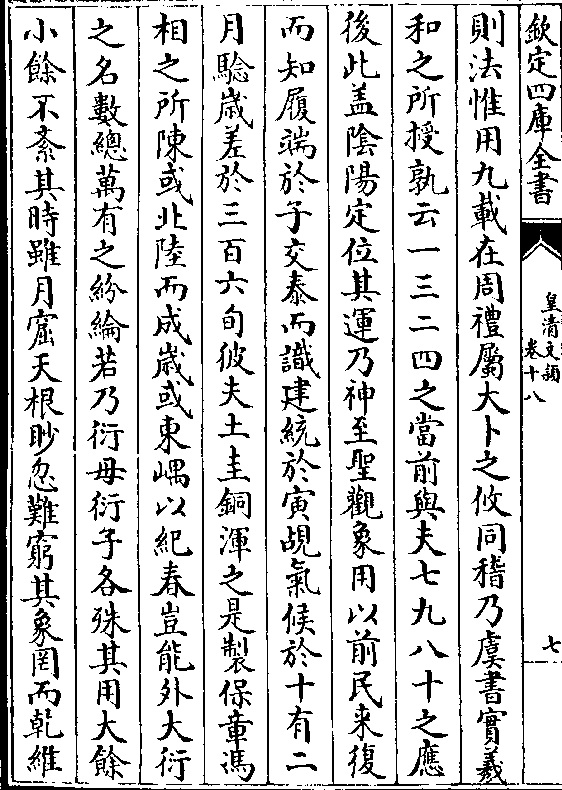 欽定四庫全書
皇清文穎
卷十八
七
則法惟用九載在周禮屬大卜之攸同稽乃虞書實羲
和之所授孰云一三二四之當前與夫七九八十之應
後此盖陰陽定位其運乃神至聖觀象用以前民来復
而知履端於子交泰而識建統於寅覘氣候於十有二
月騐嵗差於三百六旬彼夫土圭銅渾之是製保章馮
相之所陳或北陸而成嵗或東嵎以紀春豈能外大衍
之名數總萬有之紛綸若乃衍母衍子各殊其用大餘
小餘不紊其時雖月窟天根眇忽難窮其象罔而乾維